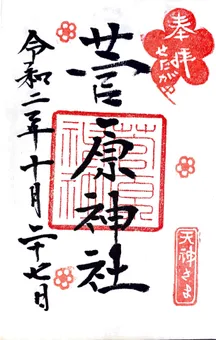 奉拝
せたがや
菅原神社
令和二年十月二十七日
天神さま